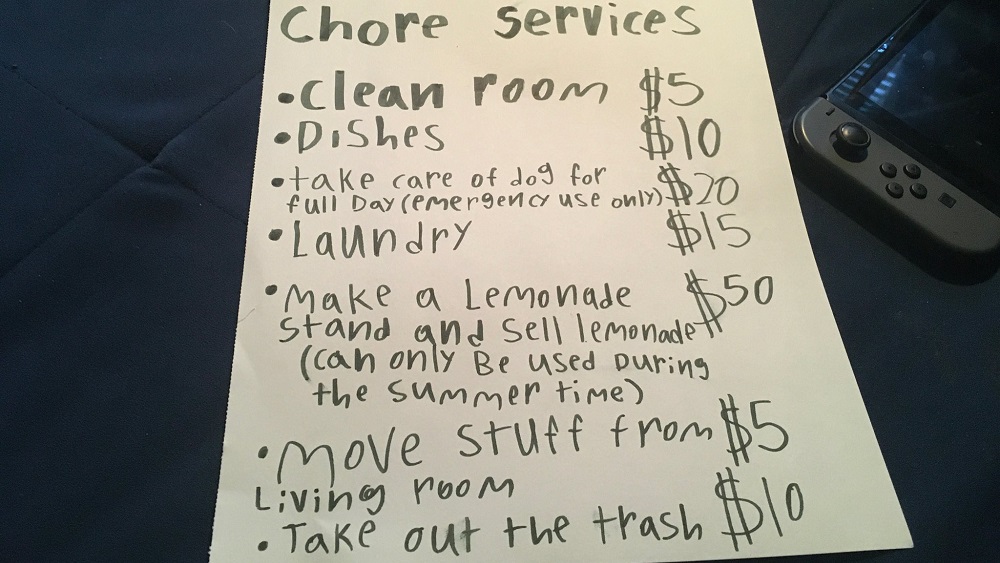 Chore services
•Clean room $5
•Dishes $10
•take care of dog for
full Day (emergency use only) $20
•Laundry $15
•Make a Lemonade $50
stand and sell lemonade
(can only Be used During
the summer time)
•Move stuff from $5
Living room
•Take out the trash $10